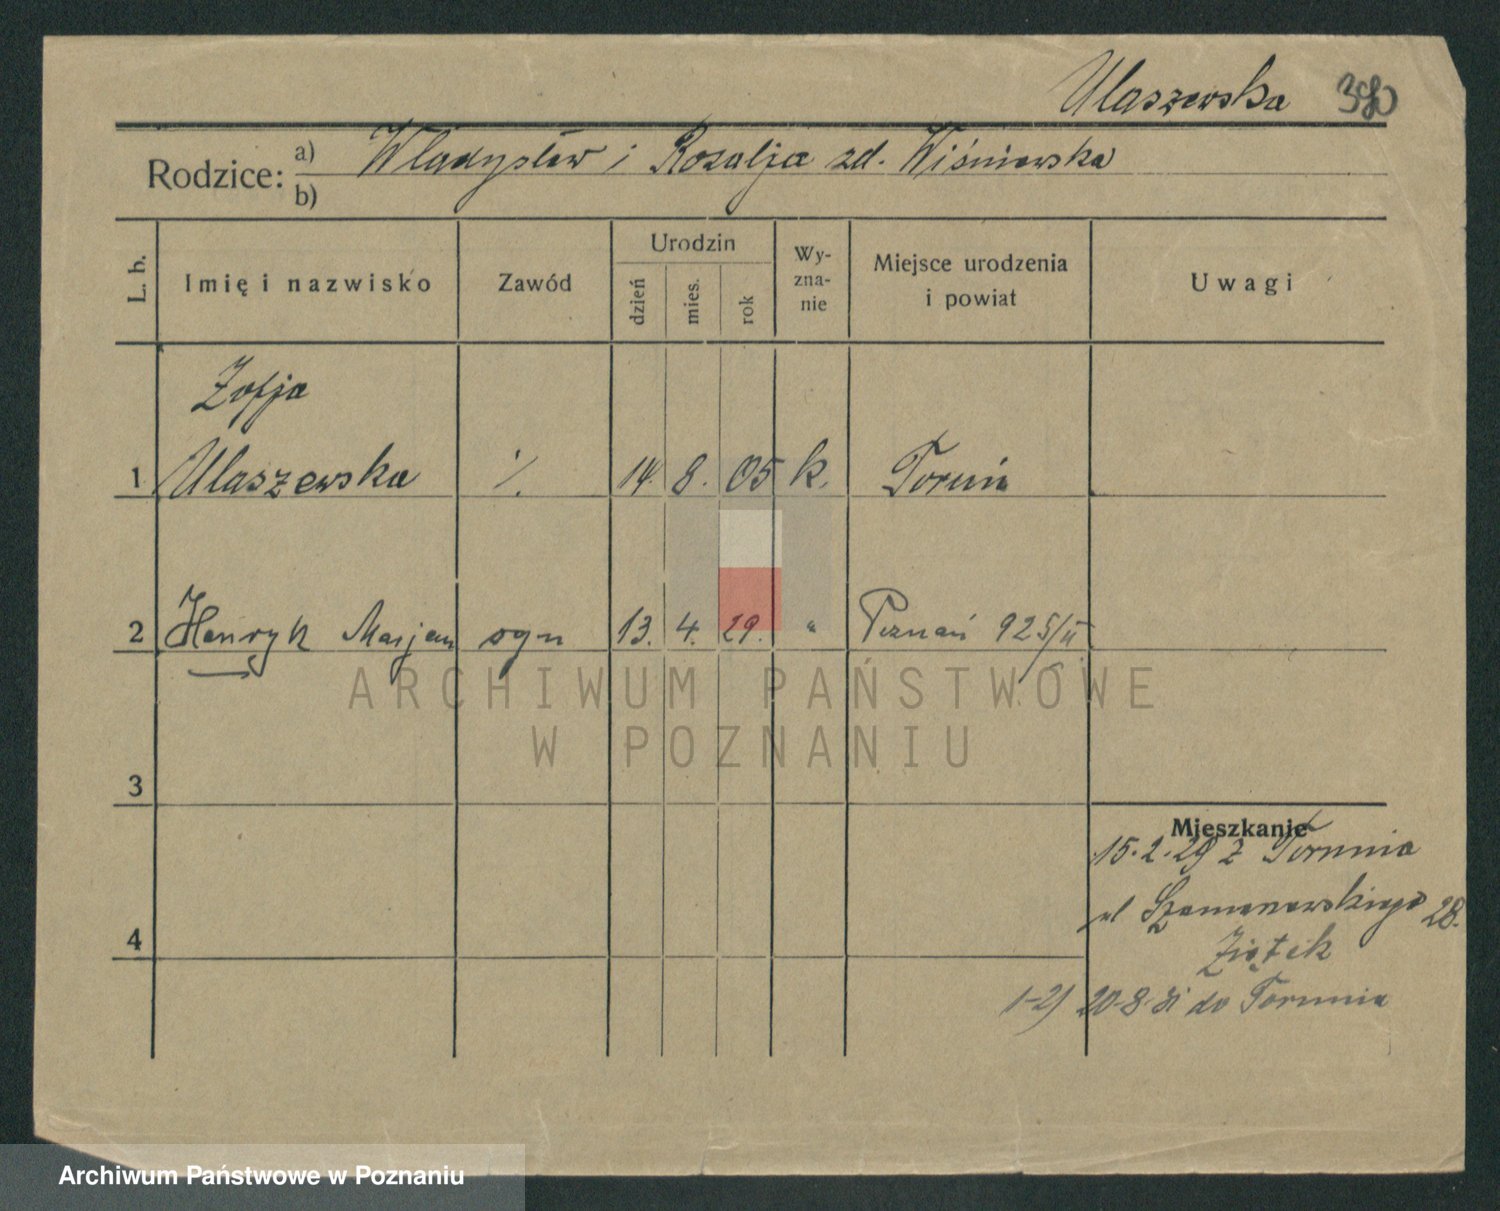 Ulaszewska 380
Rodzice: a) Władysław i Rozalja zd. Wiśniewska
b)
L. b. Imię i nazwisko Zawód Urodzin dzień mies. rok Wy-zna-nie Miejsce urodzenia i powiat Uwagi
Zofja
1 Ulaszewska ·/. 14. 8. 05 k. Toruń
2 Henryk Marjan syn 13. 4. 29. " Poznań 925/II
ARCHIWUM PAŃSTWOWE
W POZNANIU
3
Mieszkanie
15.2.29 z Torunia
ul 28.
4
Ziątek
1-2) 20-8-31 do Torunia
Archiwum Państwowe w Poznaniu